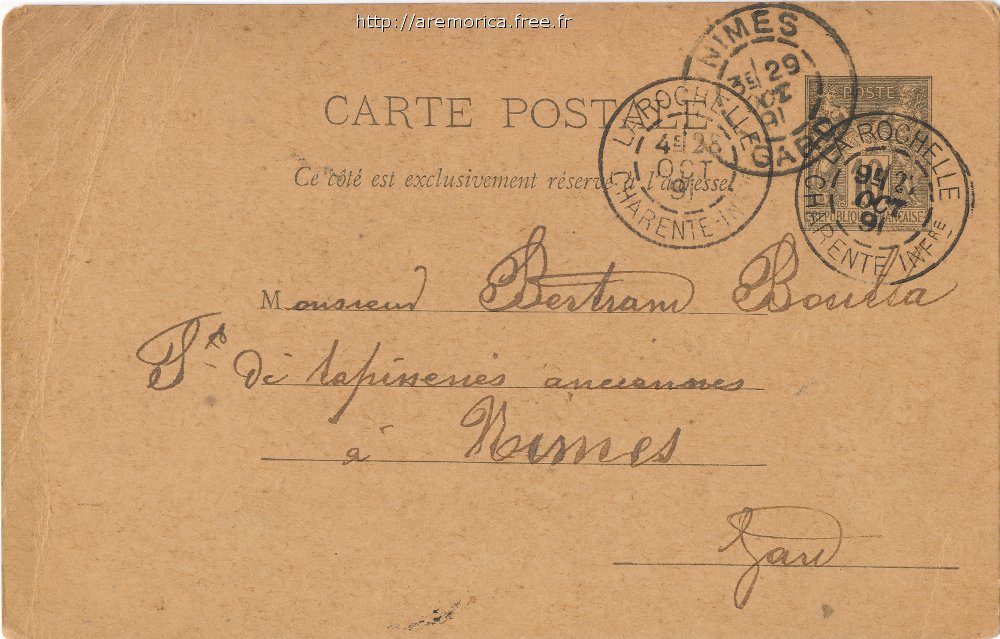 http://aremorica.free.fr
CARTE POSTALE
Ce côté est exclusivement réservé à l'adresse.
NIMES
3E 29
OCT
91
GARD
LA ROCHELLE
4E 28
OCT
91
CHARENTE-INFRE
POSTE
10
RÉPUBLIQUE FRANÇAISE
LA ROCHELLE
OCT
91
CHARENTE INFRE
Monsieur Bertram
de tapisseries anciennes
à Nimes
Gard